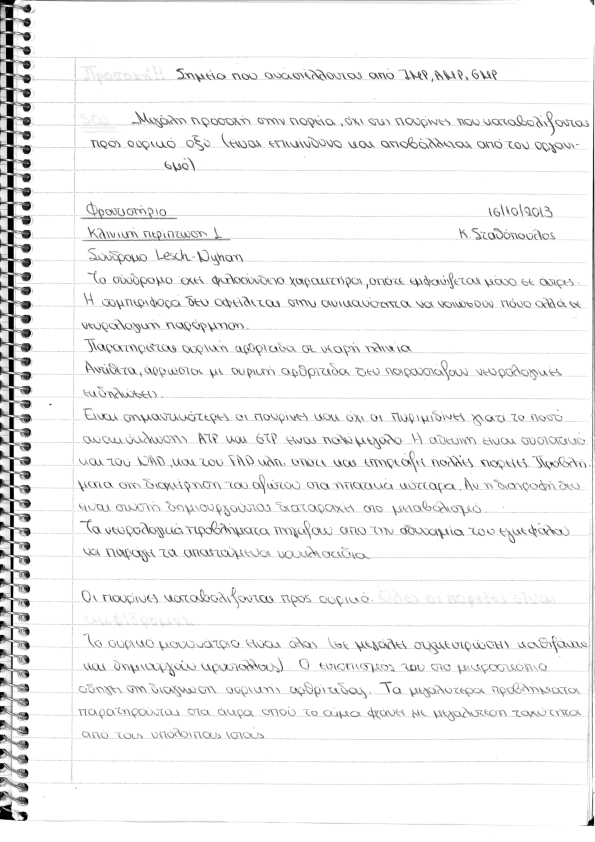 Σημεία που αναστέλλονται από IMP, AMP, GMP
Μεγάλη προσοχή στην πορεία, όχι στις πουρίνες που καταβολίζονται
προς ουρικό οξύ (είναι επικίνδυνο και αποβάλλεται από τον οργανι-
σμό)
Φροντιστήριο 16/10/2013
Κλινική περίπτωση 1 Κ. Σταθόπουλος
Σύνδρομο Lesch-Nyhan
Το σύνδρομο έχει φυλοσύνδετο χαρακτήρα, οπότε εμφανίζεται μόνο σε άντρες.
Η συμπεριφορά δεν οφείλεται στην ανικανότητα να νοιώσουν πόνο αλλά σε
νευρολογική παρόρμηση.
Παρατηρείται ουρική αρθρίτιδα σε νεαρή ηλικία
Αντίθετα, άρρωστοι με ουρική αρθρίτιδα δεν παρουσιάζουν νευρολογικές
εκδηλώσεις.
Είναι σημαντικότερες οι πουρίνες και όχι οι πυριμιδίνες γιατί το ποσό
ανακύκλωσης ATP και GTP είναι πολύ μεγάλο. Η αδενίνη είναι συστατικό
και του NAD, και του FAD κλπ. οπότε και επηρεάζει πολλές πορείες. Προβλή-
ματα στη διαχείρηση του αζώτου στα ηπατικά κύτταρα. Αν η διατροφή δεν
είναι σωστή δημιουργούνται διαταραχές στο μεταβολισμό.
Τα νευρολογικά προβλήματα πηγάζουν από την αδυναμία του εγκεφάλου
να παράγει τα απαιτούμενα νουκλεοτίδια
Οι πουρίνες καταβολίζονται προς ουρικό.
Το ουρικό μονονάτριο είναι άλας (σε μεγάλες συγκεντρώσεις καθιζάνει
και δημιουργούν κρυστάλλους). Ο εντοπισμός του στο μικροσκόπιο
οδηγεί στη διάγνωση ουρικής αρθρίτιδας. Τα μεγαλύτερα προβλήματα
παρατηρούνται στα άκρα οπού το αίμα φτάνει με μεγαλύτερη ταχύτητα
από τους υπόλοιπους ιστούς